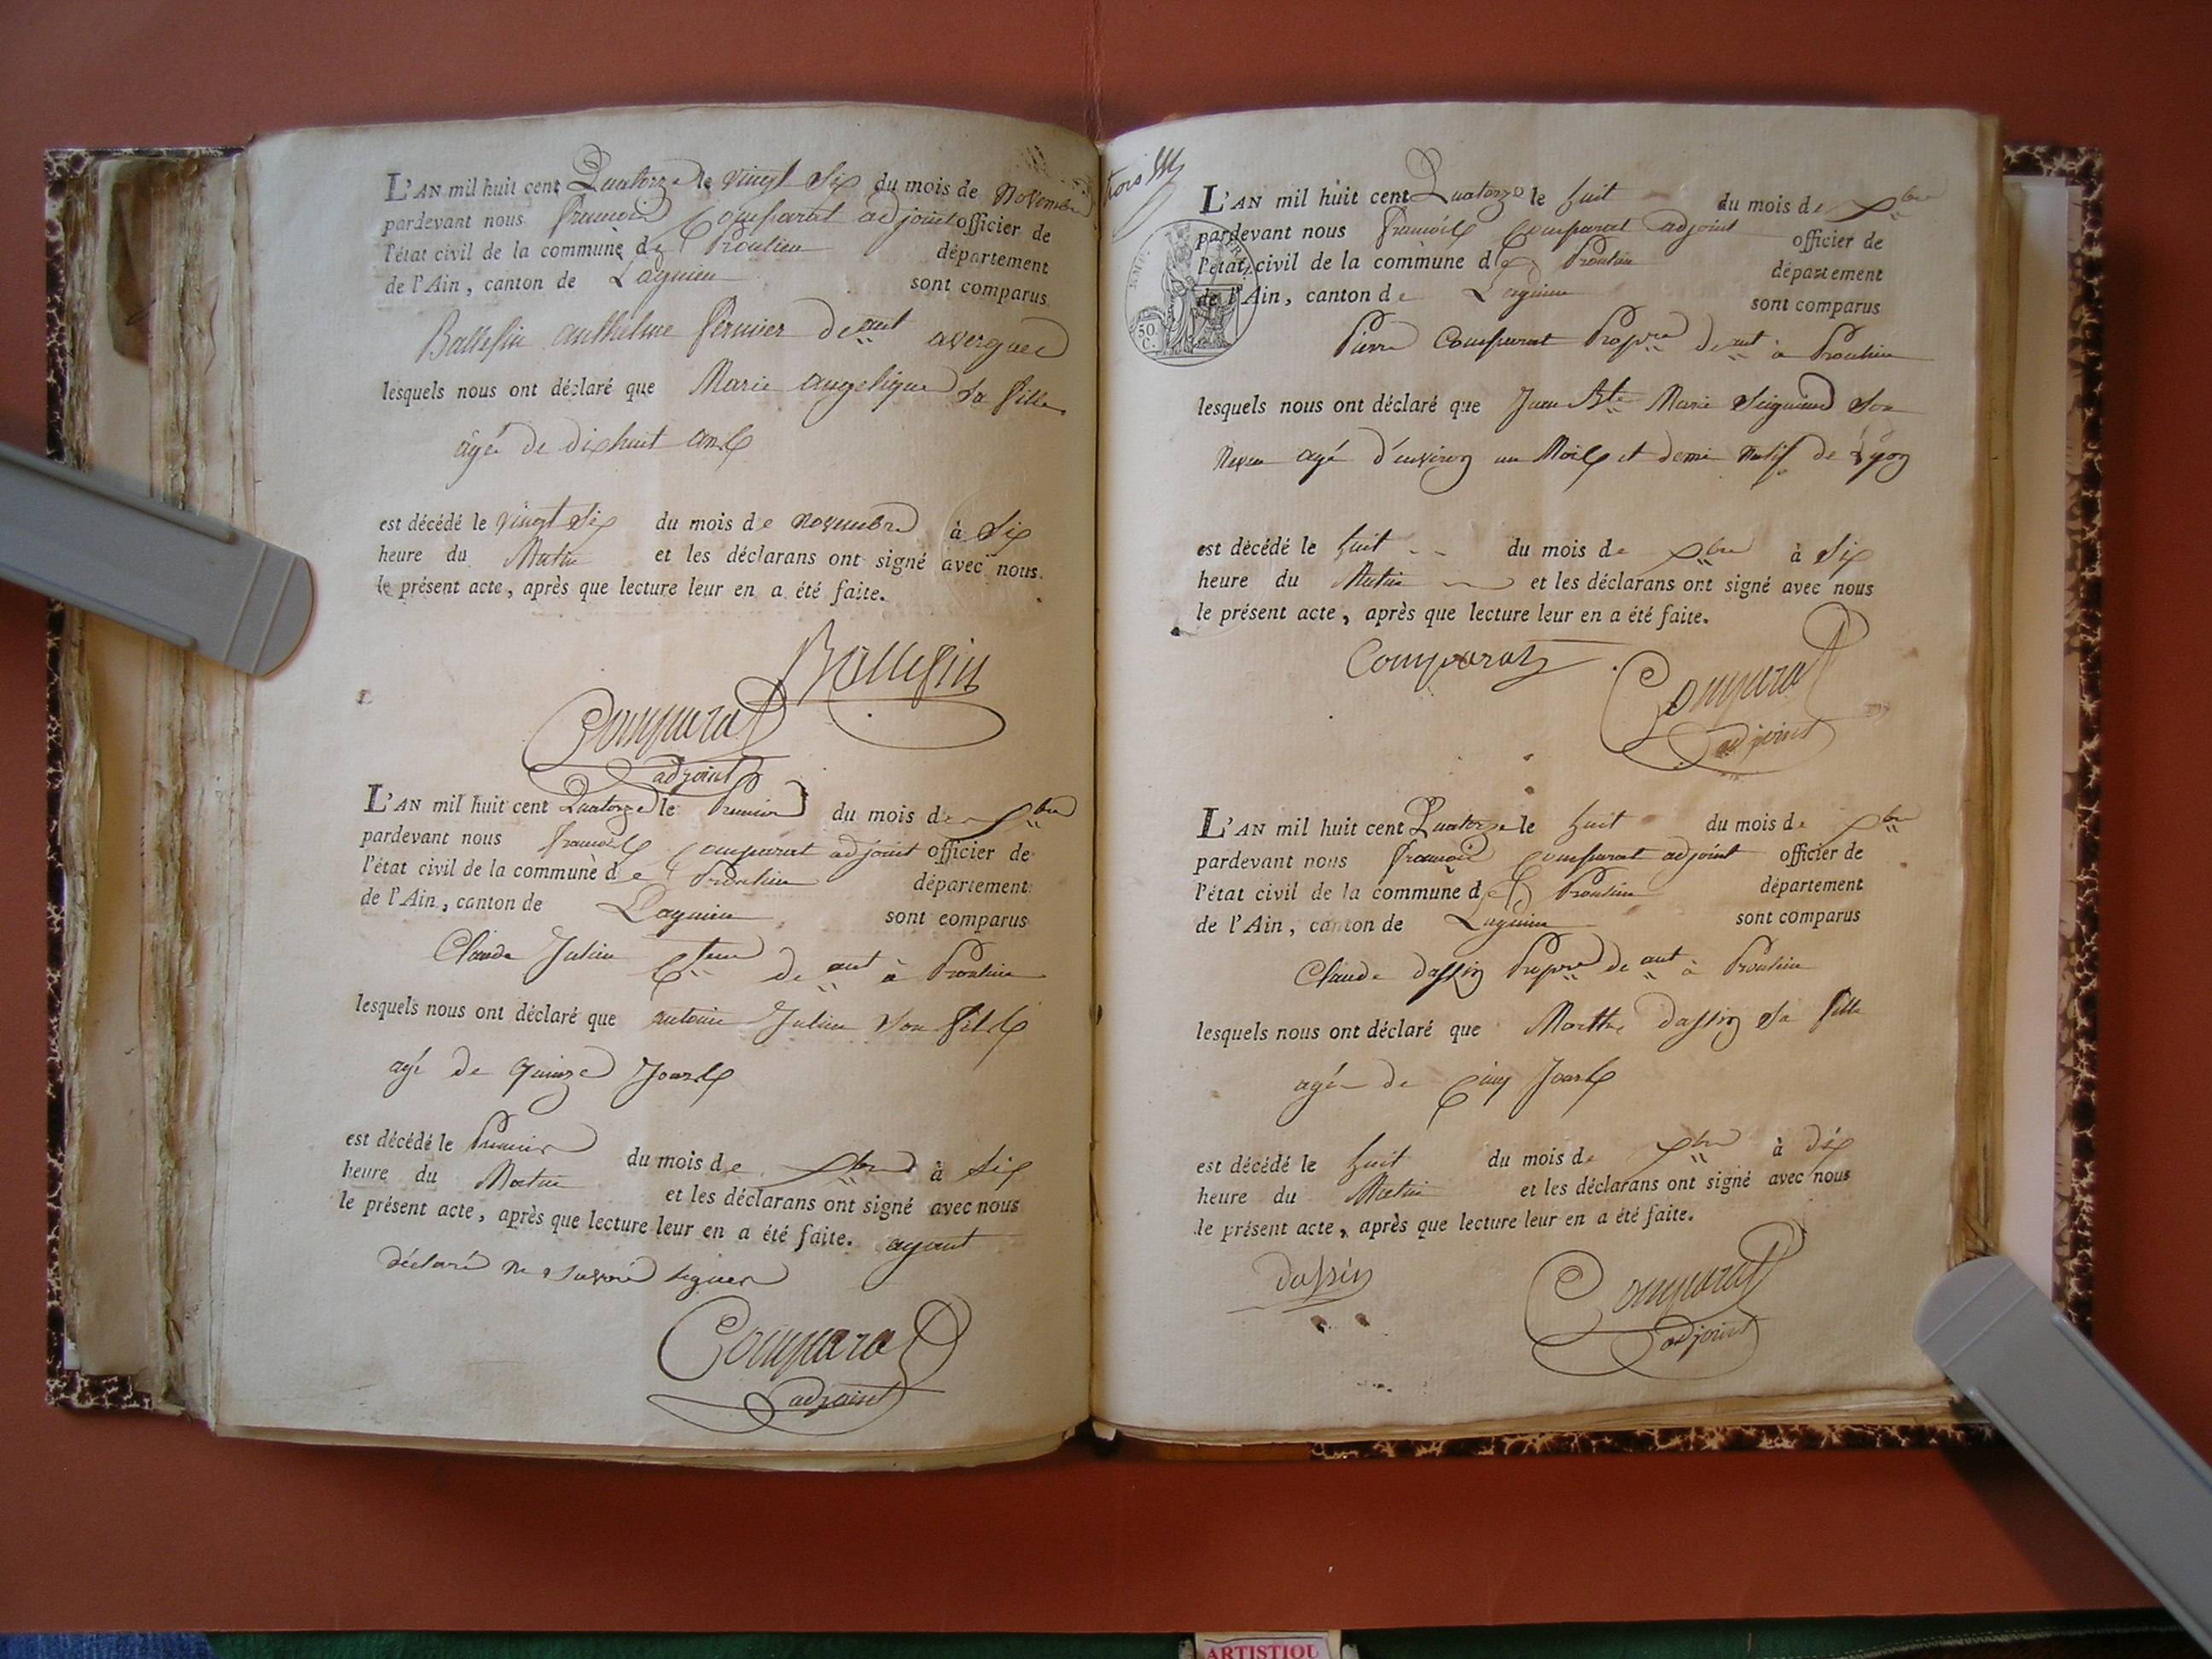 L'AN mil huit cent Quatorze le vingt Six du mois de Novembre
pardevant nous francois Comparat adjoint officier de
l'état civil de la commune de Proulieu département
de l'Ain, canton de Lagnieu sont comparus
Ballefin anthelme fermier de ant
lesquels nous ont déclaré que Marie angelique Sa fille
âgé de dixhuit ans
est décédé le vingt Six du mois de novembre à Six
heure du Matin et les déclarans ont signé avec nous
le présent acte, après que lecture leur en a été faite.
Ballefin
Comparat
adjoint
L'AN mil huit cent Quatorze le Premier du mois de xbre
pardevant nous francois Comparat adjoint officier de
l'état civil de la commune de Proulieu département
de l'Ain, canton de Lagnieu sont comparus
Claude Julien de ant à Proulieu
lesquels nous ont déclaré que antoine Julien Son fils
agé de quinze Jours
est décédé le Premier du mois de xbre à Six
heure du Matin et les déclarans ont signé avec nous
le présent acte, après que lecture leur en a été faite. ayant
déclaré ne Savoir signer
Comparat
adjoint
trois
50
C.
L'AN mil huit cent Quatorze le huit du mois de xbre
pardevant nous francois Comparat adjoint officier de
l'état civil de la commune de Proulieu département
de l'Ain, canton de Lagnieu sont comparus
Pierre Comparat Propre de ant à Proulieu
lesquels nous ont déclaré que Jean Bte Marie Seignieud Son
Neveu agé d'environ un Mois et demi natif de Lyon
est décédé le huit du mois de xbre à Six
heure du Matin et les déclarans ont signé avec nous
le présent acte, après que lecture leur en a été faite.
Comparat Comparat
adjoint
L'AN mil huit cent Quatorze le huit du mois de xbre
pardevant nous francois Comparat adjoint officier de
l'état civil de la commune de Proulieu département
de l'Ain, canton de Lagnieu sont comparus
Claude dassin Propre de ant à Proulieu
lesquels nous ont déclaré que Marthe dassin Sa fille
agé de Cinq Jours
est décédé le huit du mois de xbre à dix
heure du Matin et les déclarans ont signé avec nous
le présent acte, après que lecture leur en a été faite.
dassin Comparat
adjoint
ARTISTIQU